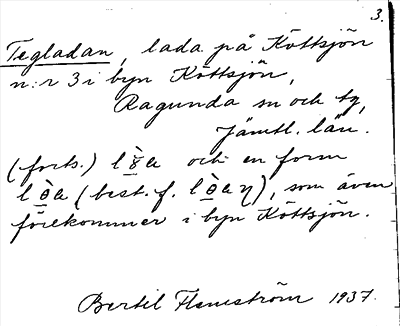 3.
Tegladan, lada på Köttsjön
n:r 3 i byn Köttsjön,
Ragunda sn och tg,
Jämtl. län.
(forts.) och en form
(best. f. ), som även
förekommer i byn Köttsjön.
Bertil Flemström 1937.